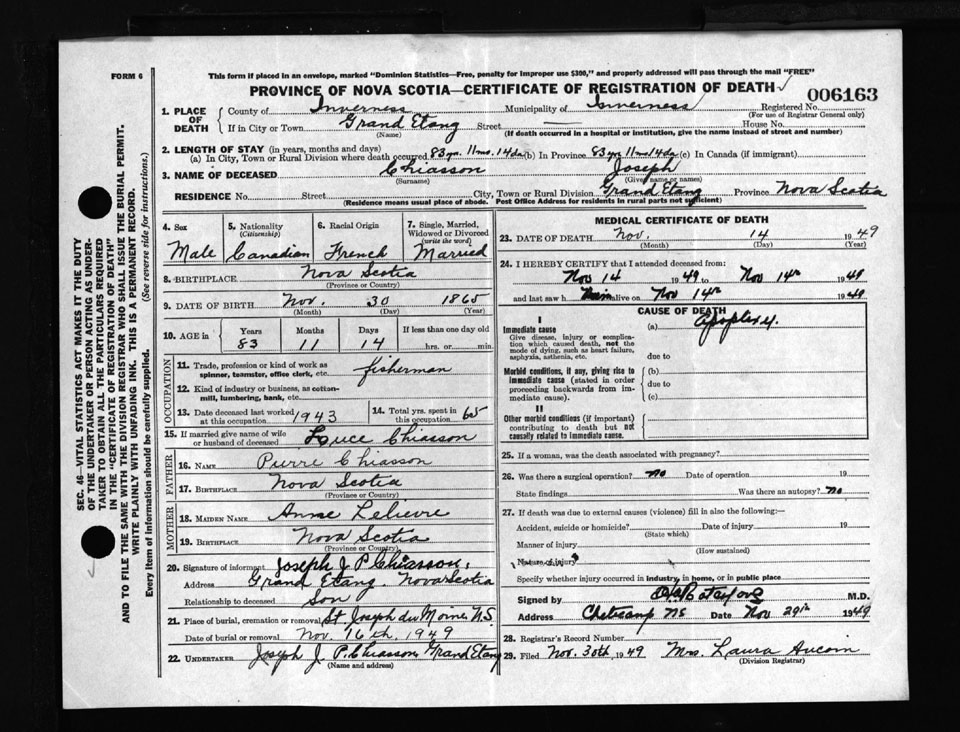 FORM 6
This form if placed in an envelope, marked "Dominion Statistics—Free, penalty for improper use $300," and properly addressed will pass through the mail "FREE"
PROVINCE OF NOVA SCOTIA—CERTIFICATE OF REGISTRATION OF DEATH
006163
1. PLACE OF DEATH County of Inverness Municipality of Inverness Registered No.
(For use of Registrar General only)
If in City or Town Grand Etang Street House No.
(Name) (If death occurred in a hospital or institution, give the name instead of street and number)
2. LENGTH OF STAY (in years, months and days)
(a) In City, Town or Rural Division where death occurred 83 yrs. 11 mo. 14 da (b) In Province 83 yrs 11 mo 14 da (c) In Canada (if immigrant)
3. NAME OF DECEASED Chiasson Joseph
(Surname) (Given name or names)
RESIDENCE No. Street City, Town or Rural Division Grand Etang Province Nova Scotia
(Residence means usual place of abode. Post Office Address for residents in rural parts not sufficient)
4. Sex 5. Nationality (Citizenship) 6. Racial Origin 7. Single, Married, Widowed or Divorced (write the word)
Male Canadian French Married
8. BIRTHPLACE Nova Scotia
(Province or Country)
9. DATE OF BIRTH Nov. 30 1865
(Month) (Day) (Year)
10. AGE in Years Months Days If less than one day old
83 11 14 hrs. or min.
OCCUPATION
11. Trade, profession or kind of work as spinner, teamster, office clerk, etc. fisherman
12. Kind of industry or business, as cotton-mill, lumbering, bank, etc.
13. Date deceased last worked at this occupation 1943 14. Total yrs. spent in this occupation 65
15. If married give name of wife or husband of deceased Luce Chiasson
FATHER
16. NAME Pierre Chiasson
17. BIRTHPLACE Nova Scotia
(Province or Country)
MOTHER
18. MAIDEN NAME Anne Lelievre
19. BIRTHPLACE Nova Scotia
(Province or Country)
20. Signature of informant Joseph J. P. Chiasson
Address Grand Etang. Nova Scotia
Relationship to deceased Son
21. Place of burial, cremation or removal St. Joseph du Moine N.S.
Date of burial or removal Nov. 16th, 1949
22. UNDERTAKER Joseph J. P. Chiasson Grand Etang
(Name and address)
MEDICAL CERTIFICATE OF DEATH
23. DATE OF DEATH Nov. 14 1949
(Month) (Day) (Year)
24. I HEREBY CERTIFY that I attended deceased from:
Nov 14 1949 to Nov 14th 1949
and last saw h him alive on Nov 14th 1949
CAUSE OF DEATH
I
Immediate cause (a) Apoplexy.
Give disease, injury or complication which caused death, not the mode of dying, such as heart failure, asphyxia, asthenia, etc. due to
Morbid conditions, if any, giving rise to immediate cause (stated in order proceeding backwards from immediate cause). (b)
due to
(c)
II
Other morbid conditions (if important) contributing to death but not causally related to immediate cause.
25. If a woman, was the death associated with pregnancy?
26. Was there a surgical operation? no Date of operation 19
State findings Was there an autopsy? no
27. If death was due to external causes (violence) fill in also the following:—
Accident, suicide or homicide? Date of injury 19
(State which)
Manner of injury
(How sustained)
Nature of injury
Specify whether injury occurred in industry, in home, or in public place
Signed by M.D.
Address Cheticamp N.S. Date Nov 29th 1949
28. Registrar's Record Number
29. Filed Nov. 30th, 1949 Mrs. Laura Aucoin
(Division Registrar)
SEC. 46—VITAL STATISTICS ACT MAKES IT THE DUTY
OF THE UNDERTAKER OR PERSON ACTING AS UNDER-
TAKER TO OBTAIN ALL THE PARTICULARS REQUIRED
IN THE "CERTIFICATE OF REGISTRATION OF DEATH"
AND TO FILE THE SAME WITH THE DIVISION REGISTRAR WHO SHALL ISSUE THE BURIAL PERMIT.
WRITE PLAINLY WITH UNFADING INK. THIS IS A PERMANENT RECORD.
Every item of information should be carefully supplied. (See reverse side for instructions.)